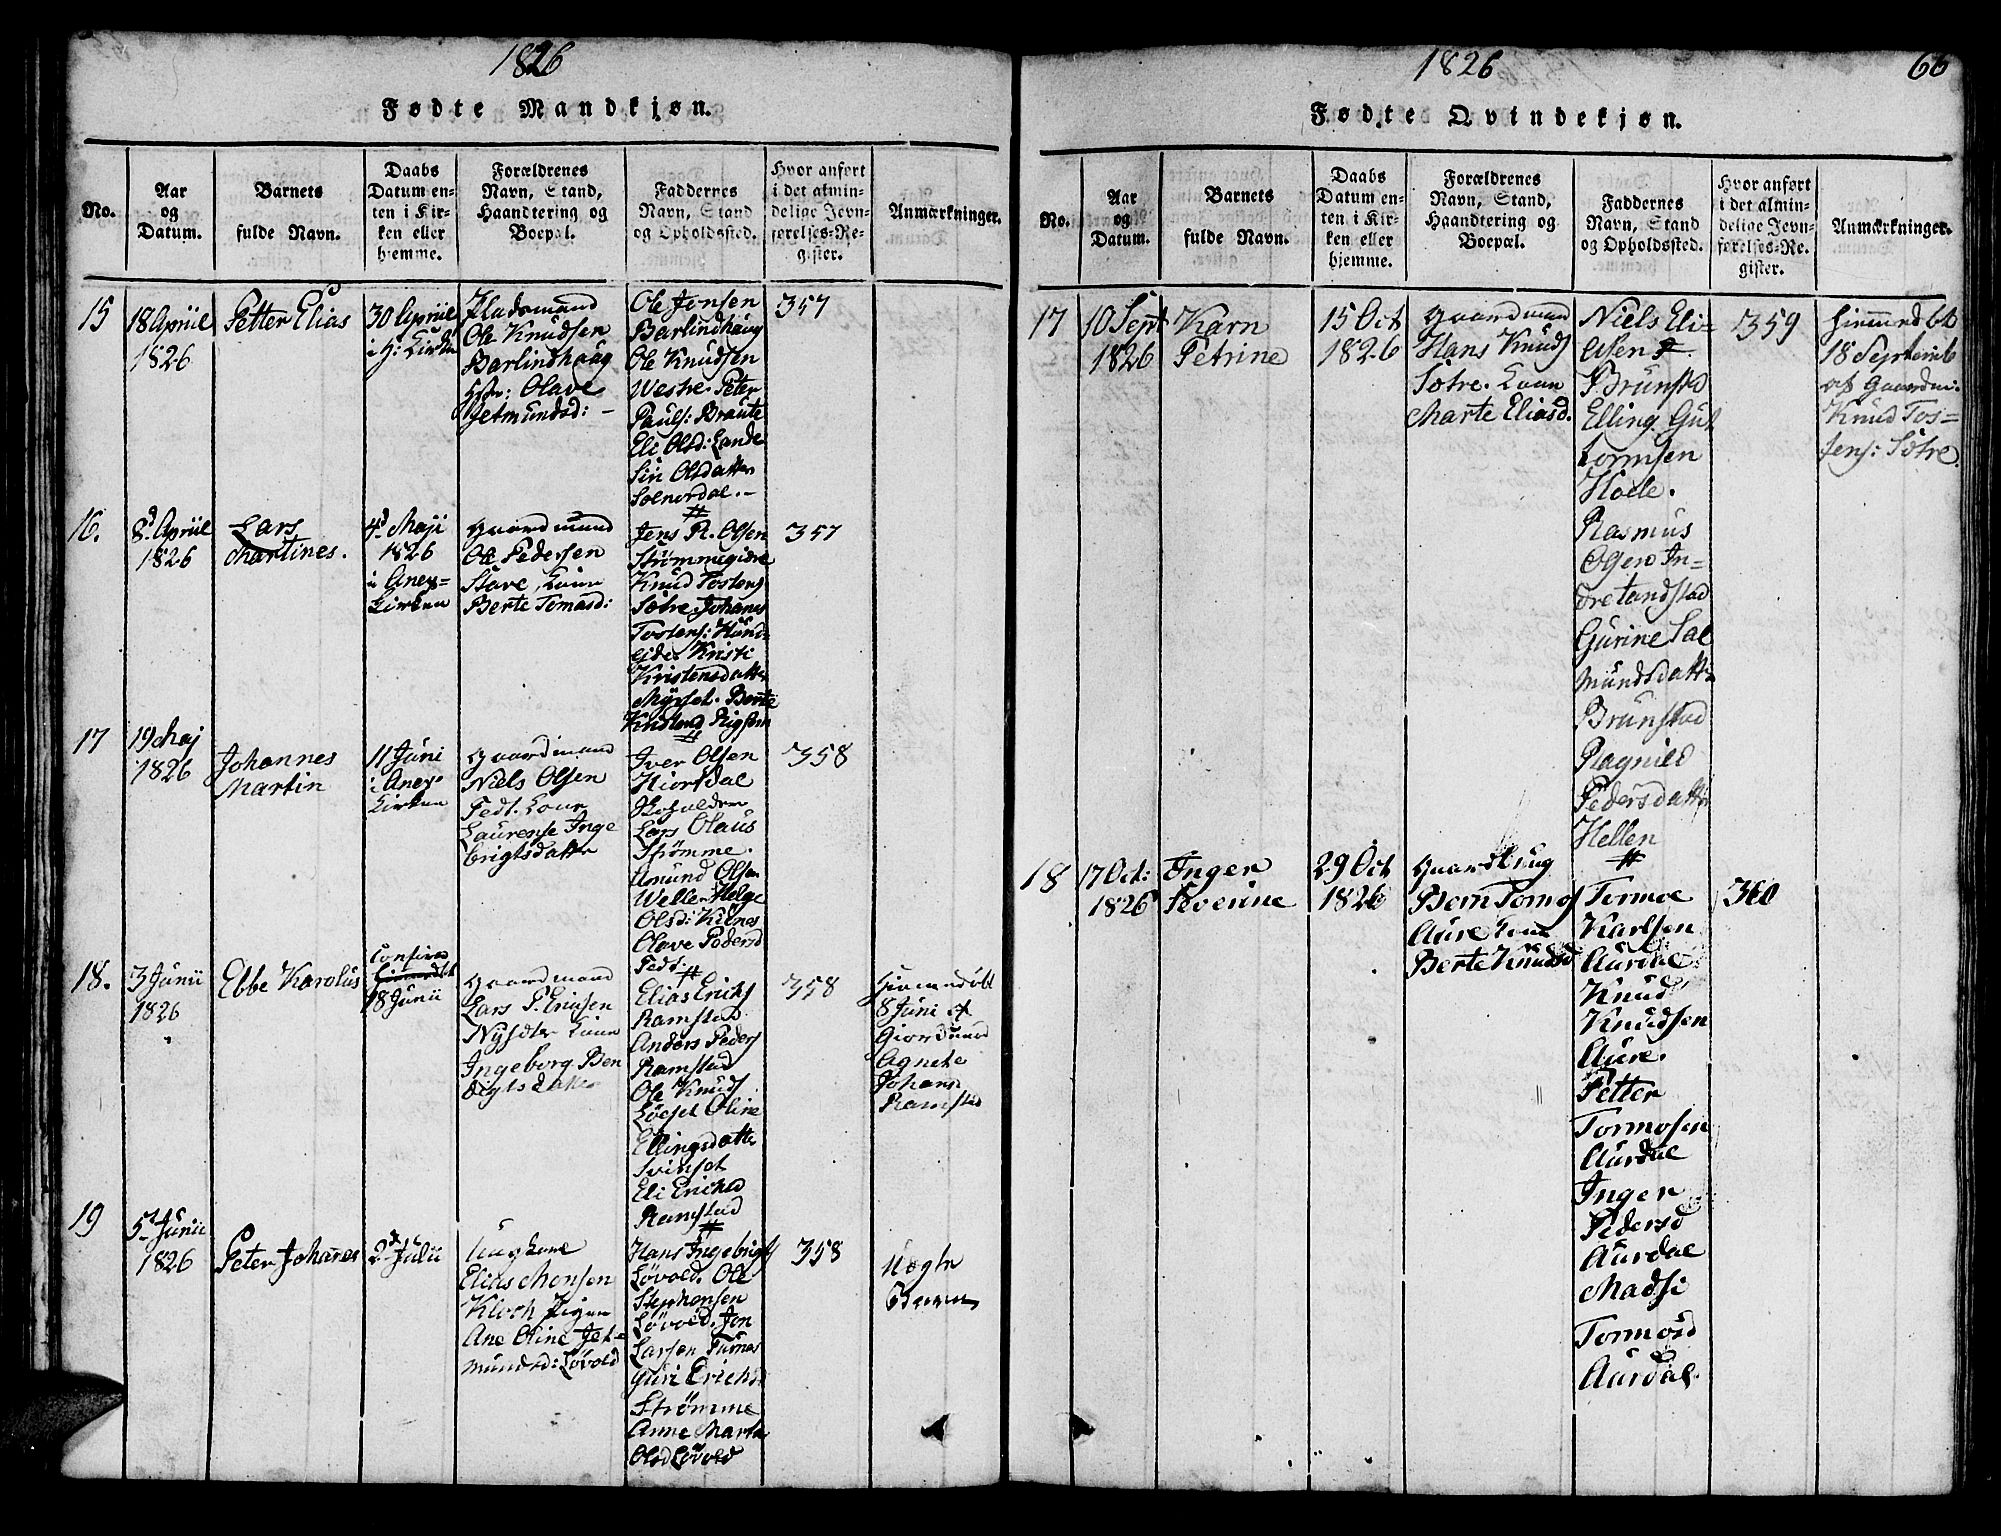 1826
Fødte Mandkjøn.
No.
Aar
og
Datum.
Barnets
fulde Navn.
Daabs
Datum en-
ten i Kir-
ken eller
hjemme.
Forældrenes
Navn, Stand,
Haandtering og
Boepæl.
Faddernes
Navn, Stand
og Opholdssted.
Hvor anført
i det almin-
delige Jevn-
førelses-Re-
gister.
Anmærkninger.
15
18 Apriil
1826
Petter Elias
30 Apriil
i H: Kirken
Pladsmand
Ole Knudsen
Barlindhaug
Hstr: Olave
Jetmundsd: -
Ole Jonsen
Barlindhaug
Ole Knudsen
Westre. Peter
Pauls: Braute
Eli Olsd: Lande
Siri Olsdatter
Solnordal. -
357
16.
8d Apriil
1826
Lars
Martines.
4d Maji
1826
i Anex-
Kirken
Gaardmand
Ole Pedersen
Stave, Kone
Berte Tomasd:
Jens R. Olsen
Strømmegidre
Knud Tostens
Sotre. Johanes
Tostens: Hund-
eide. Kristi
Kristensdatter
Myrset. Berte
357
17
19 Maj
1826
Johannes
Martin
11 Juni
i Anex-
Kirken
Gaardmand
Niels Olsen
Fedt. Kone
Laurense Inge
brigtsdatter
Iver Olsen
Hiortdal
Lars Olaus
Strømme.
Amund Olsen
Welle. Helge
Olsd: Kilnes
Olave Pedersd
Fedt:
358
18.
3 Junii
1826
Ebbe Karolus
18 Junii
Gaardmand
Lars P. Erichsen
Kone
Ingeborg Ben
digtsdatter
Elias Erichs
Ramstad
Anders Peders
Ramstad
Ole Knuds
Løeset Oline
Ellingsdatter
Svinset
Eli Erichsd
Ramstad
358
Hiemmedøbt
8 Juni af
Giordmod
Agnete
Johans
Ramstad
19
5d Junii
1826
Peter Johanes
2d Julii
Ungkarl
Elias Monsen
Kloch Pigen
Ane Oline Jet-
mundsd: Løvold
Hans Ingebrigts
Løvold. Ole
Stephensen
Løvold. Jon
Larsen Furnes
Guri Erichsd
Strømme
Anne Marta
Olsd Løvold
358
Uægte
Barn
1826
66
Fødte Qvindekjøn.
No.
Aar
og
Datum.
Barnets
fulde Navn.
Daabs
Datum en-
ten i Kir-
ken eller
hjemme.
Forældrenes
Navn, Stand,
Haandtering og
Boepæl.
Faddernes
Navn, Stand
og Opholdssted.
Hvor anført
i det almin-
delige Jevn-
førelses-Re-
gister.
Anmærkninger.
17
10 Sept
1826
Karn
Petrine
15 Oct
1826
Gaardmand
Hans Knuds
Sotre. Kone
Marte Eliasd.
Niels Eli-
esen
Brunstd
Elling Gut
tormsen
Hoele.
Rasmus
Olsen In-
dretandstad
Gurine Sal
mundsdatter
Brunstad
Ragnild
Pedersdatter
Hellen
359
hiemmedbt
18 Septemb
af Gaardm:
Knud Tos-
tens: Sotre.
18
17 Oct:
1826
Inger
Severine
29 Oct
1826
Gaardbrug
Bern Tomos
Aure Kone
Berte Knudsd
Tormoe
Karlsen
Aurdal
Knud
Knudsen
Aure.
Petter
Tormosen
Aurdal
Inger
Pedersd
Aurdal
Madsi
Tormosd
Aurdal.
360